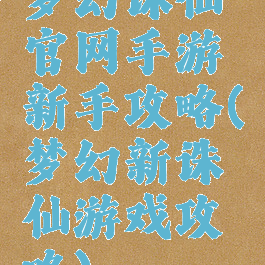 梦幻诛仙
官网手游
新手攻略(
梦幻新诛
仙游戏攻
略)